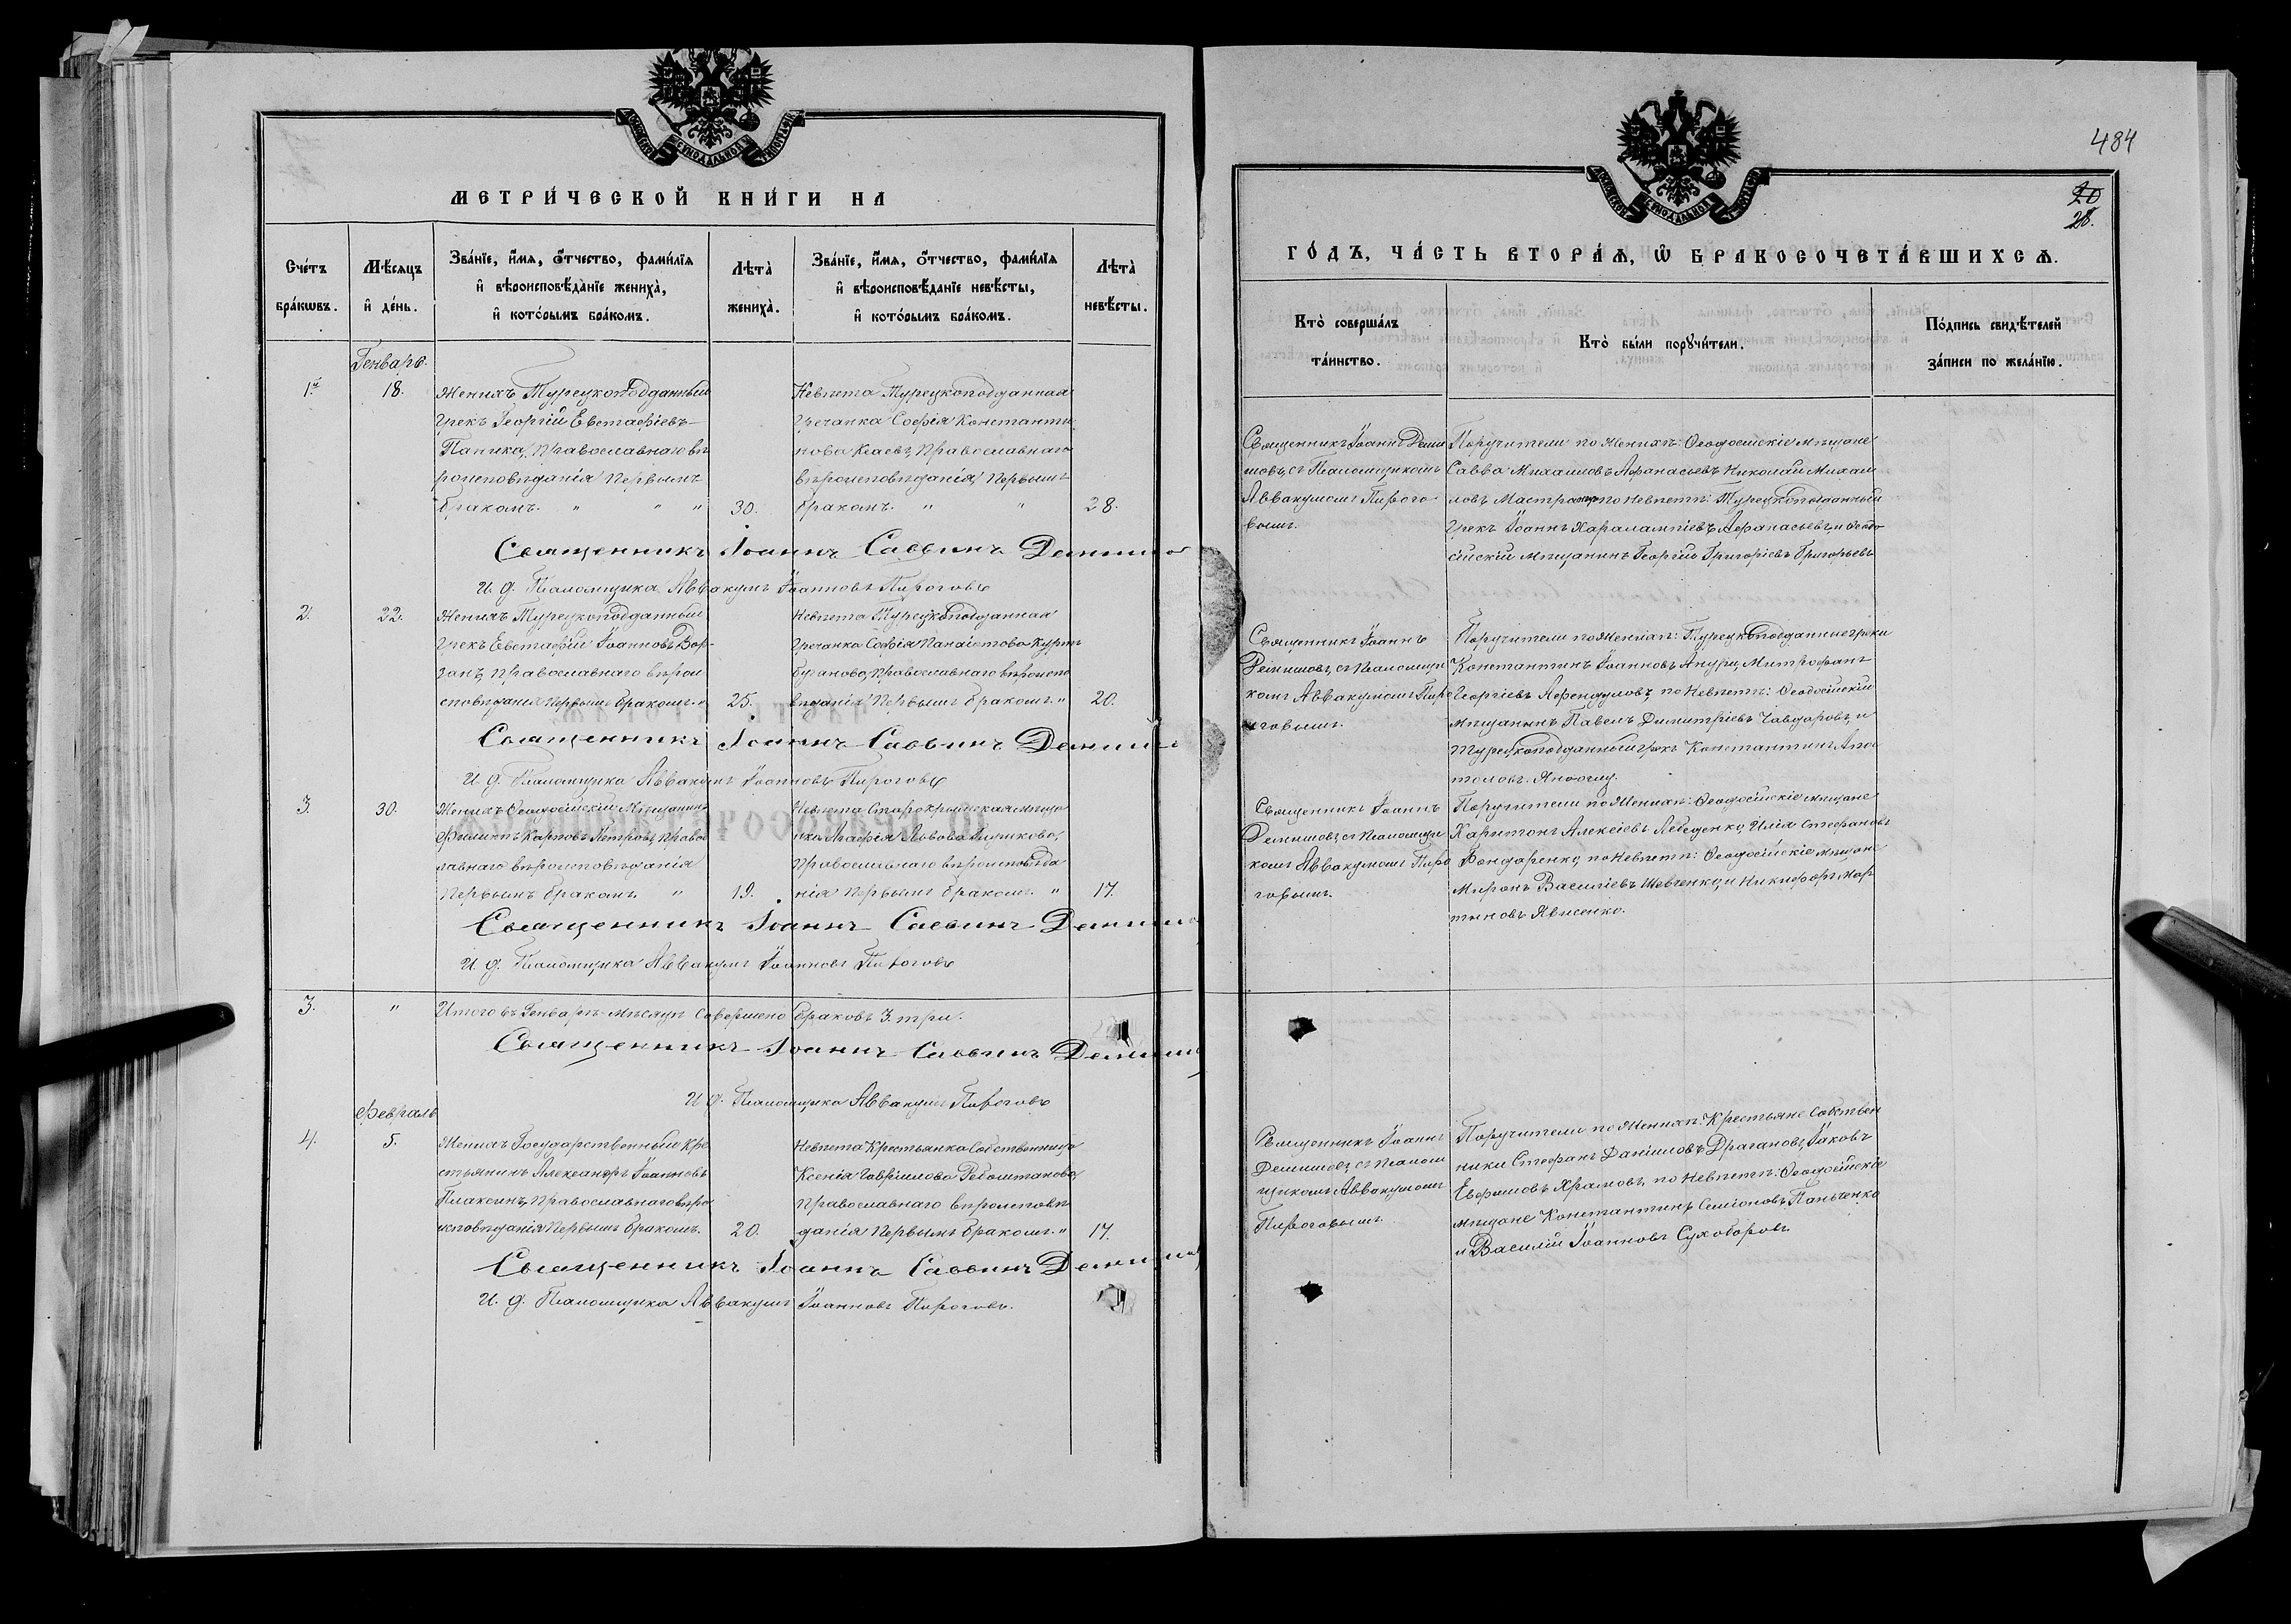 МЕТРИ́ЧЕСКОЙ КНИ́ГИ НА
Сче́тъ бра́кѡвъ.
Мѣ́сяцъ и҆ де́нь.
Зва́нїе, и҆́мѧ, ѻ҆́тчество, фами́лїѧ
и҆ вѣроисповѣ́данїе жениха̀,
и҆ кото́рымъ бра́комъ.
Лѣта̀ жениха̀.
Зва́нїе, и҆́мѧ, ѻ҆́тчество, фами́лїѧ
и҆ вѣроисповѣ́данїе невѣ́сты,
и҆ кото́рымъ бра́комъ.
Лѣта̀ невѣ́сты.
Генварь.
1й
18.
Женихъ Турецкоподданный
Грекъ Георгій Евстафіевъ
Папика, Православнаго вѣ
роисповѣданія Первымъ
бракомъ. " " "
30.
Невѣста Турецкоподданная
Гречанка Софія Константи
нова Православнаго
вѣроисповѣданія, Первымъ
бракомъ. " "
28.
Священникъ Іоаннъ Саввинъ
И. д. Псаломщика Аввакумъ Іоанновъ Пироговъ
2.
22.
Женихъ Турецкоподданный
Грекъ Евстафій Іоанновъ Вар
занъ, Православнаго вѣрои
сповѣданія Первымъ бракомъ. "
25.
Невѣста Турецкоподданная
Гречанка Софія Панаіотова Курт
Православнаго вѣроиспо
вѣданія Первымъ бракомъ. "
20.
Священникъ Іоаннъ Саввинъ
И. д. Псаломщика Аввакумъ Іоанновъ Пироговъ
3.
30.
Женихъ Ѳеодосійскій Мѣщанинъ
Филиппъ Карповъ Петровъ, Право
славнаго вѣроисповѣданія
Первымъ бракомъ. "
19.
Невѣста Старокрымская мѣща
нка Львова
Православнаго вѣроисповѣда
нія Первымъ бракомъ. "
17.
Священникъ Іоаннъ Саввинъ
И. д. Псаломщика Аввакумъ Іоанновъ Пироговъ
3.
"
Итого въ Генварѣ Мѣсяцѣ Совершено браковъ 3. три.
Священникъ Іоаннъ Саввинъ
И д. Псаломщика Аввакумъ Пироговъ
Февраль
4.
5.
Женихъ Государственный Кре
стьянинъ Александръ Іоанновъ
Плаксинъ, Православнаго вѣро
исповѣданія Первымъ бракомъ.
20.
Невѣста Крестьянка Собственница
Ксенія Гавріилова
Православнаго вѣроисповѣ
данія Первымъ бракомъ. "
17.
Священникъ Іоаннъ Саввинъ
И. д. Псаломщика Аввакумъ Іоанновъ Пироговъ.
484
20
28.
ГО́ДЪ, ЧА́СТЬ ВТОРА́Ѧ, Ѡ҆ БРАКОСОЧЕТА́ВШИХСѦ.
Кто̀ соверша́лъ
та́инство.
Кто̀ бы́ли порꙋчи́тели.
По́дпись свидѣ́телей
за́писи по жела́нїю.
Священникъ Іоаннъ Деми
шовъ, съ Псаломщикомъ
Аввакумомъ Пирого
вымъ.
Поручители по Женихѣ: Ѳеодосійскіе мѣщане
Савва Михаиловъ Афанасьевъ, Николай Михаи
ловъ по Невѣстѣ: Турецкоподданный
Грекъ Іоаннъ Харалампіевъ Афанасьевъ, и Ѳеодо
сійскій Мѣщанинъ Георгій Григоріевъ Григорьевъ
Священникъ Іоаннъ
Демишовъ, съ Псаломщи
комъ Аввакумомъ Пиро
говымъ.
Поручители по Женихѣ: Турецкоподданные Греки
Константинъ Іоанновъ Митрофанъ
Георгіевъ Афендуловъ, по Невѣстѣ: Ѳеодосійскій
мѣщанинъ Павелъ Димитріевъ Чавдаровъ, и
Турецкоподданный Грекъ Константинъ Апос
толовъ.
Священникъ Іоаннъ
Демишовъ, съ Псаломщи
комъ Аввакумомъ Пиро
говымъ.
Поручители по Женихѣ: Ѳеодосійскіе мѣщане
Харитонъ Алексіевъ Лебеденко, Илія Стефановъ
Бондаренко, по Невѣстѣ: Ѳеодосійскіе мѣщане
Миронъ Василіевъ Шевченко, и Никифоръ Мар
тиновъ
Священникъ Іоаннъ
Демишовъ, съ Псалом
щикомъ Аввакумомъ
Пироговымъ.
Поручители по Женихѣ: Крестьяне Собствен
ники Стефанъ Даніиловъ Драгановъ, Іаковъ
Евфимовъ Храмовъ, по Невѣстѣ: Ѳеодосійскіе
мѣщане Константинъ Симіоновъ Панченко
и Василій Іоанновъ Сухоборовъ.